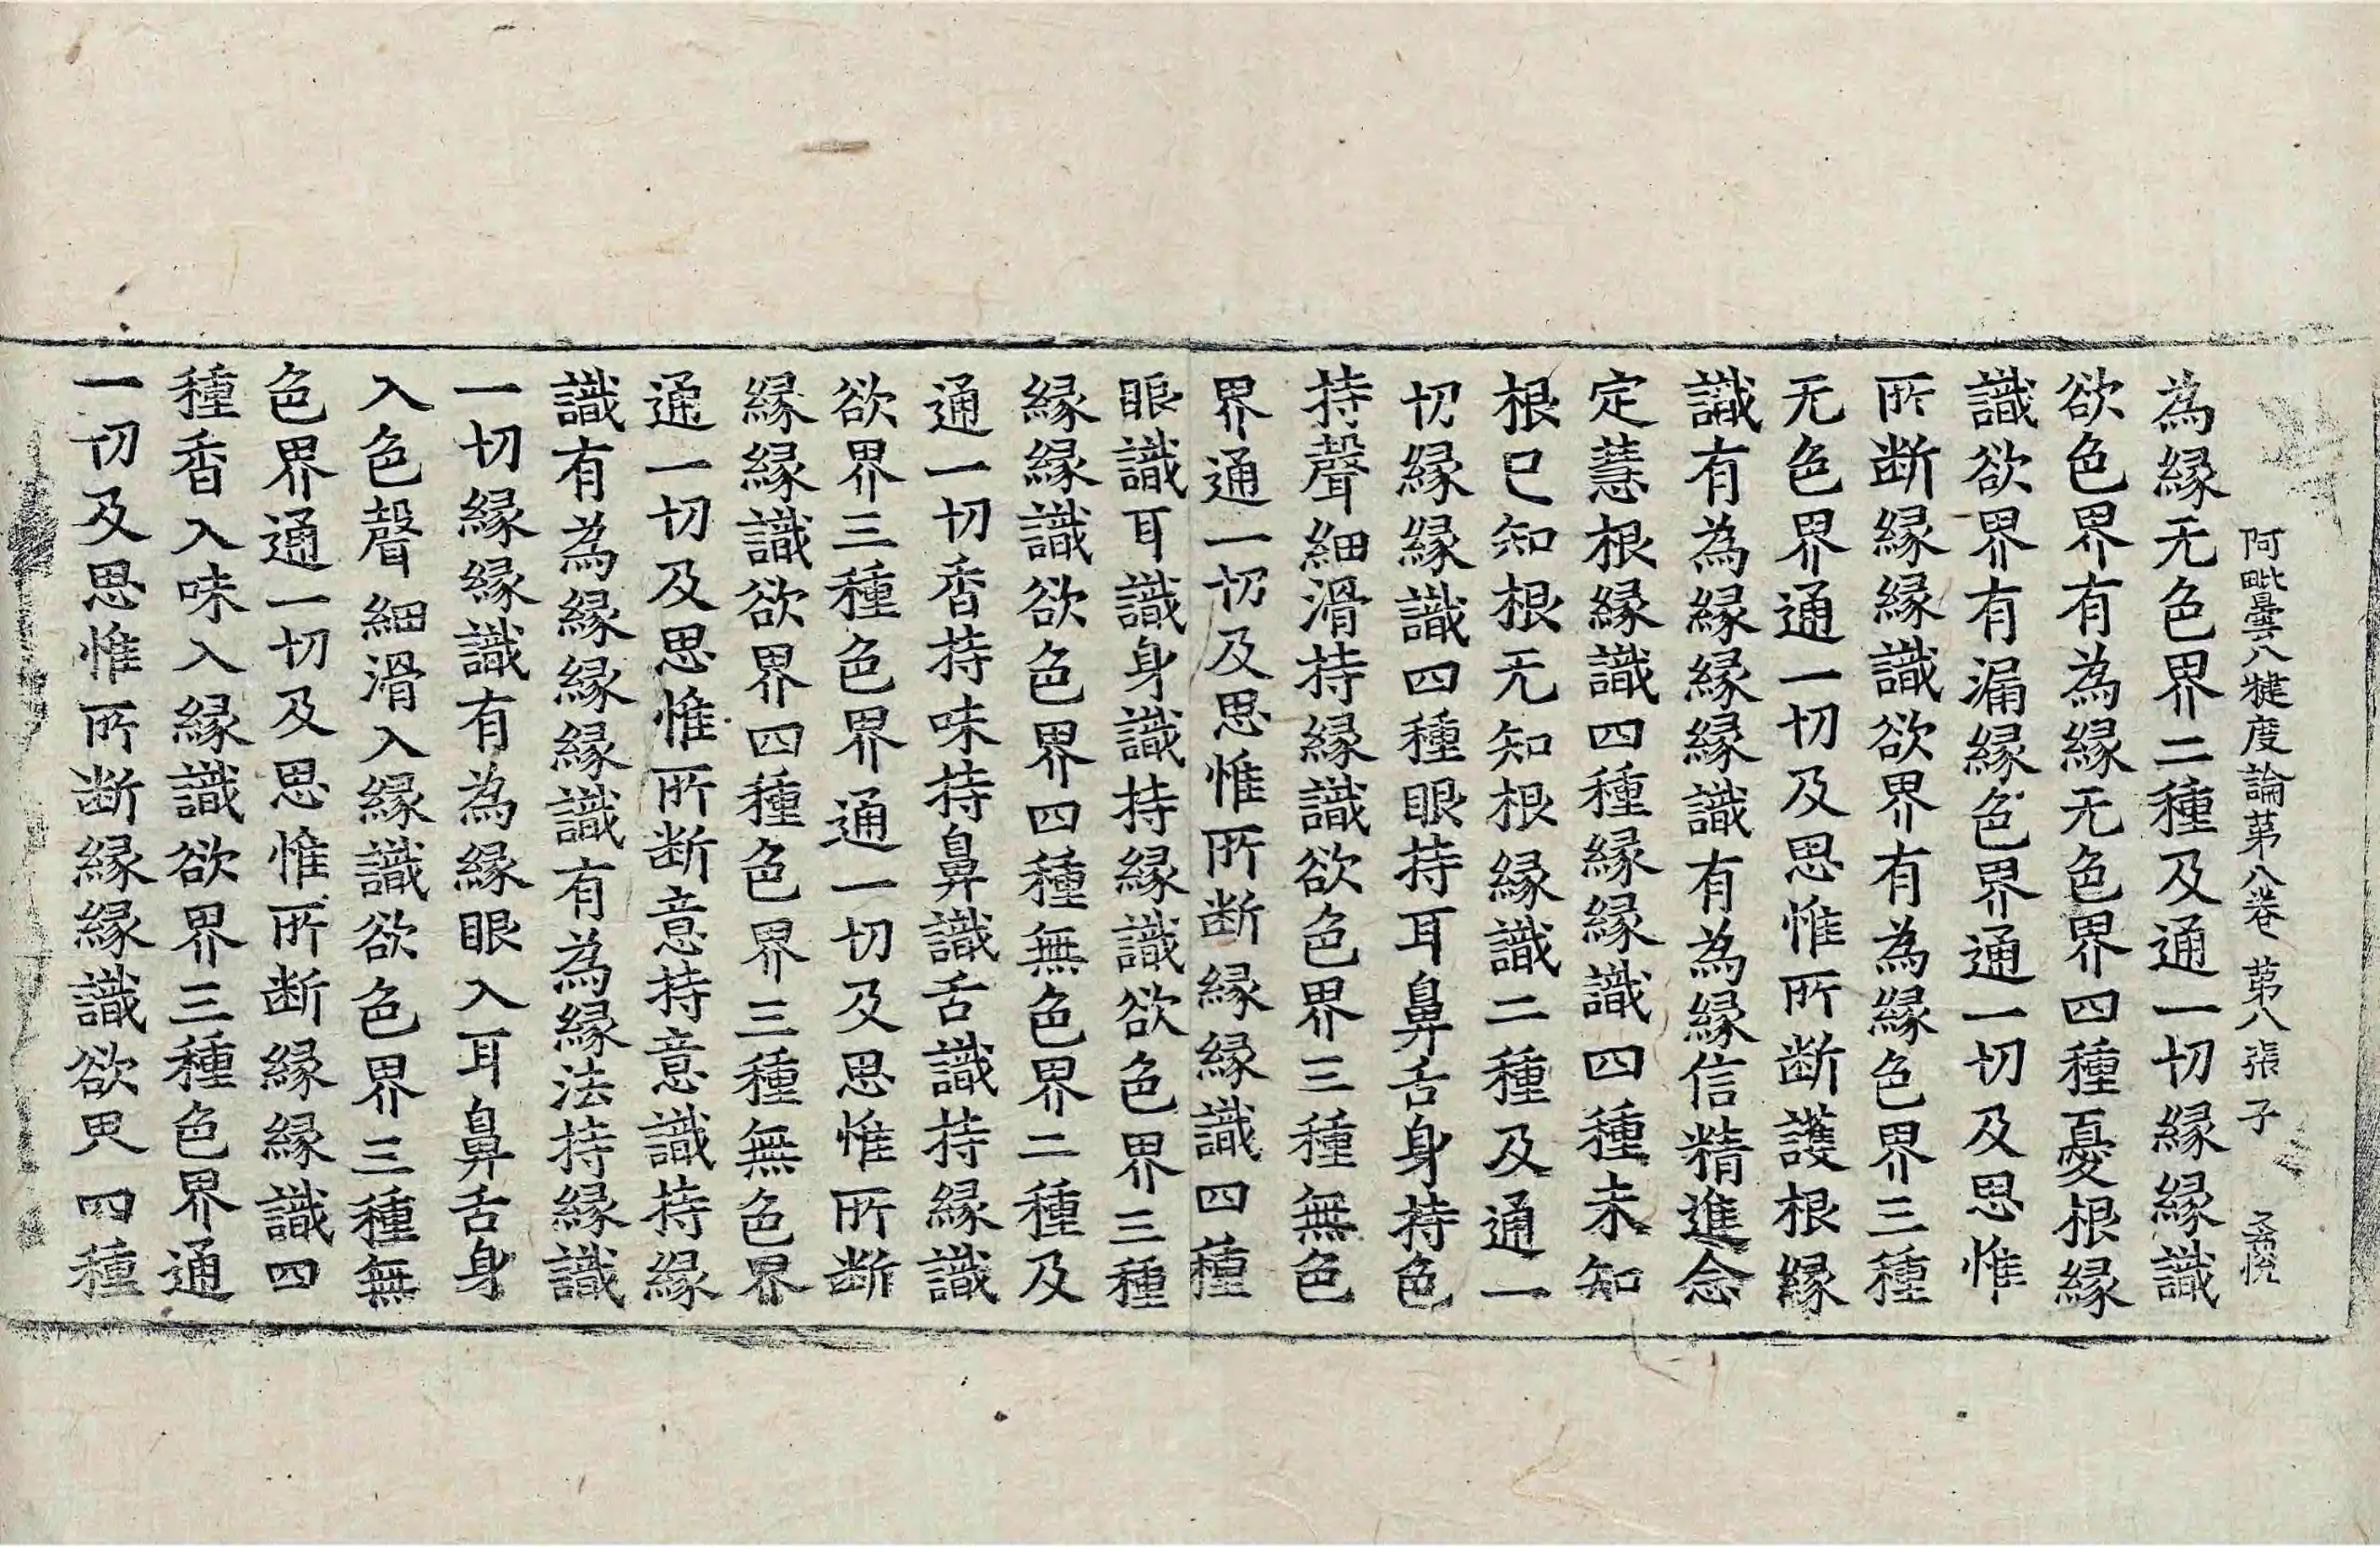 阿毗曇八犍度論第八卷 第八張 子
為緣无色界二種及通一切緣緣識
欲色界有為緣无色界四種憂根緣
識欲界有漏緣色界通一切及思惟
所断緣緣識欲界有為緣色界三種
无色界通一切及思惟所断護根緣
識有為緣緣緣識有為緣信精進念
定慧根緣識四種緣緣識四種未知
根已知根无知根緣識二種及通一
切緣緣識四種眼持耳鼻舌身持色
持聲細滑持緣識欲色界三種無色
界通一切及思惟所断緣緣識四種
眼識耳識身識持緣識欲色界三種
緣緣識欲色界四種無色界二種及
通一切香持味持鼻識舌識持緣識
欲界三種色界通一切及思惟所断
緣緣識欲界四種色界三種無色界
通一切及思惟所断意持意識持緣
識有為緣緣緣識有為緣法持緣識
一切緣緣識有為緣眼入耳鼻舌身
入色聲細滑入緣識欲色界三種無
色界通一切及思惟所断緣緣識四
種香入味入緣識欲界三種色界通
一切及思惟所断緣緣識欲界四種